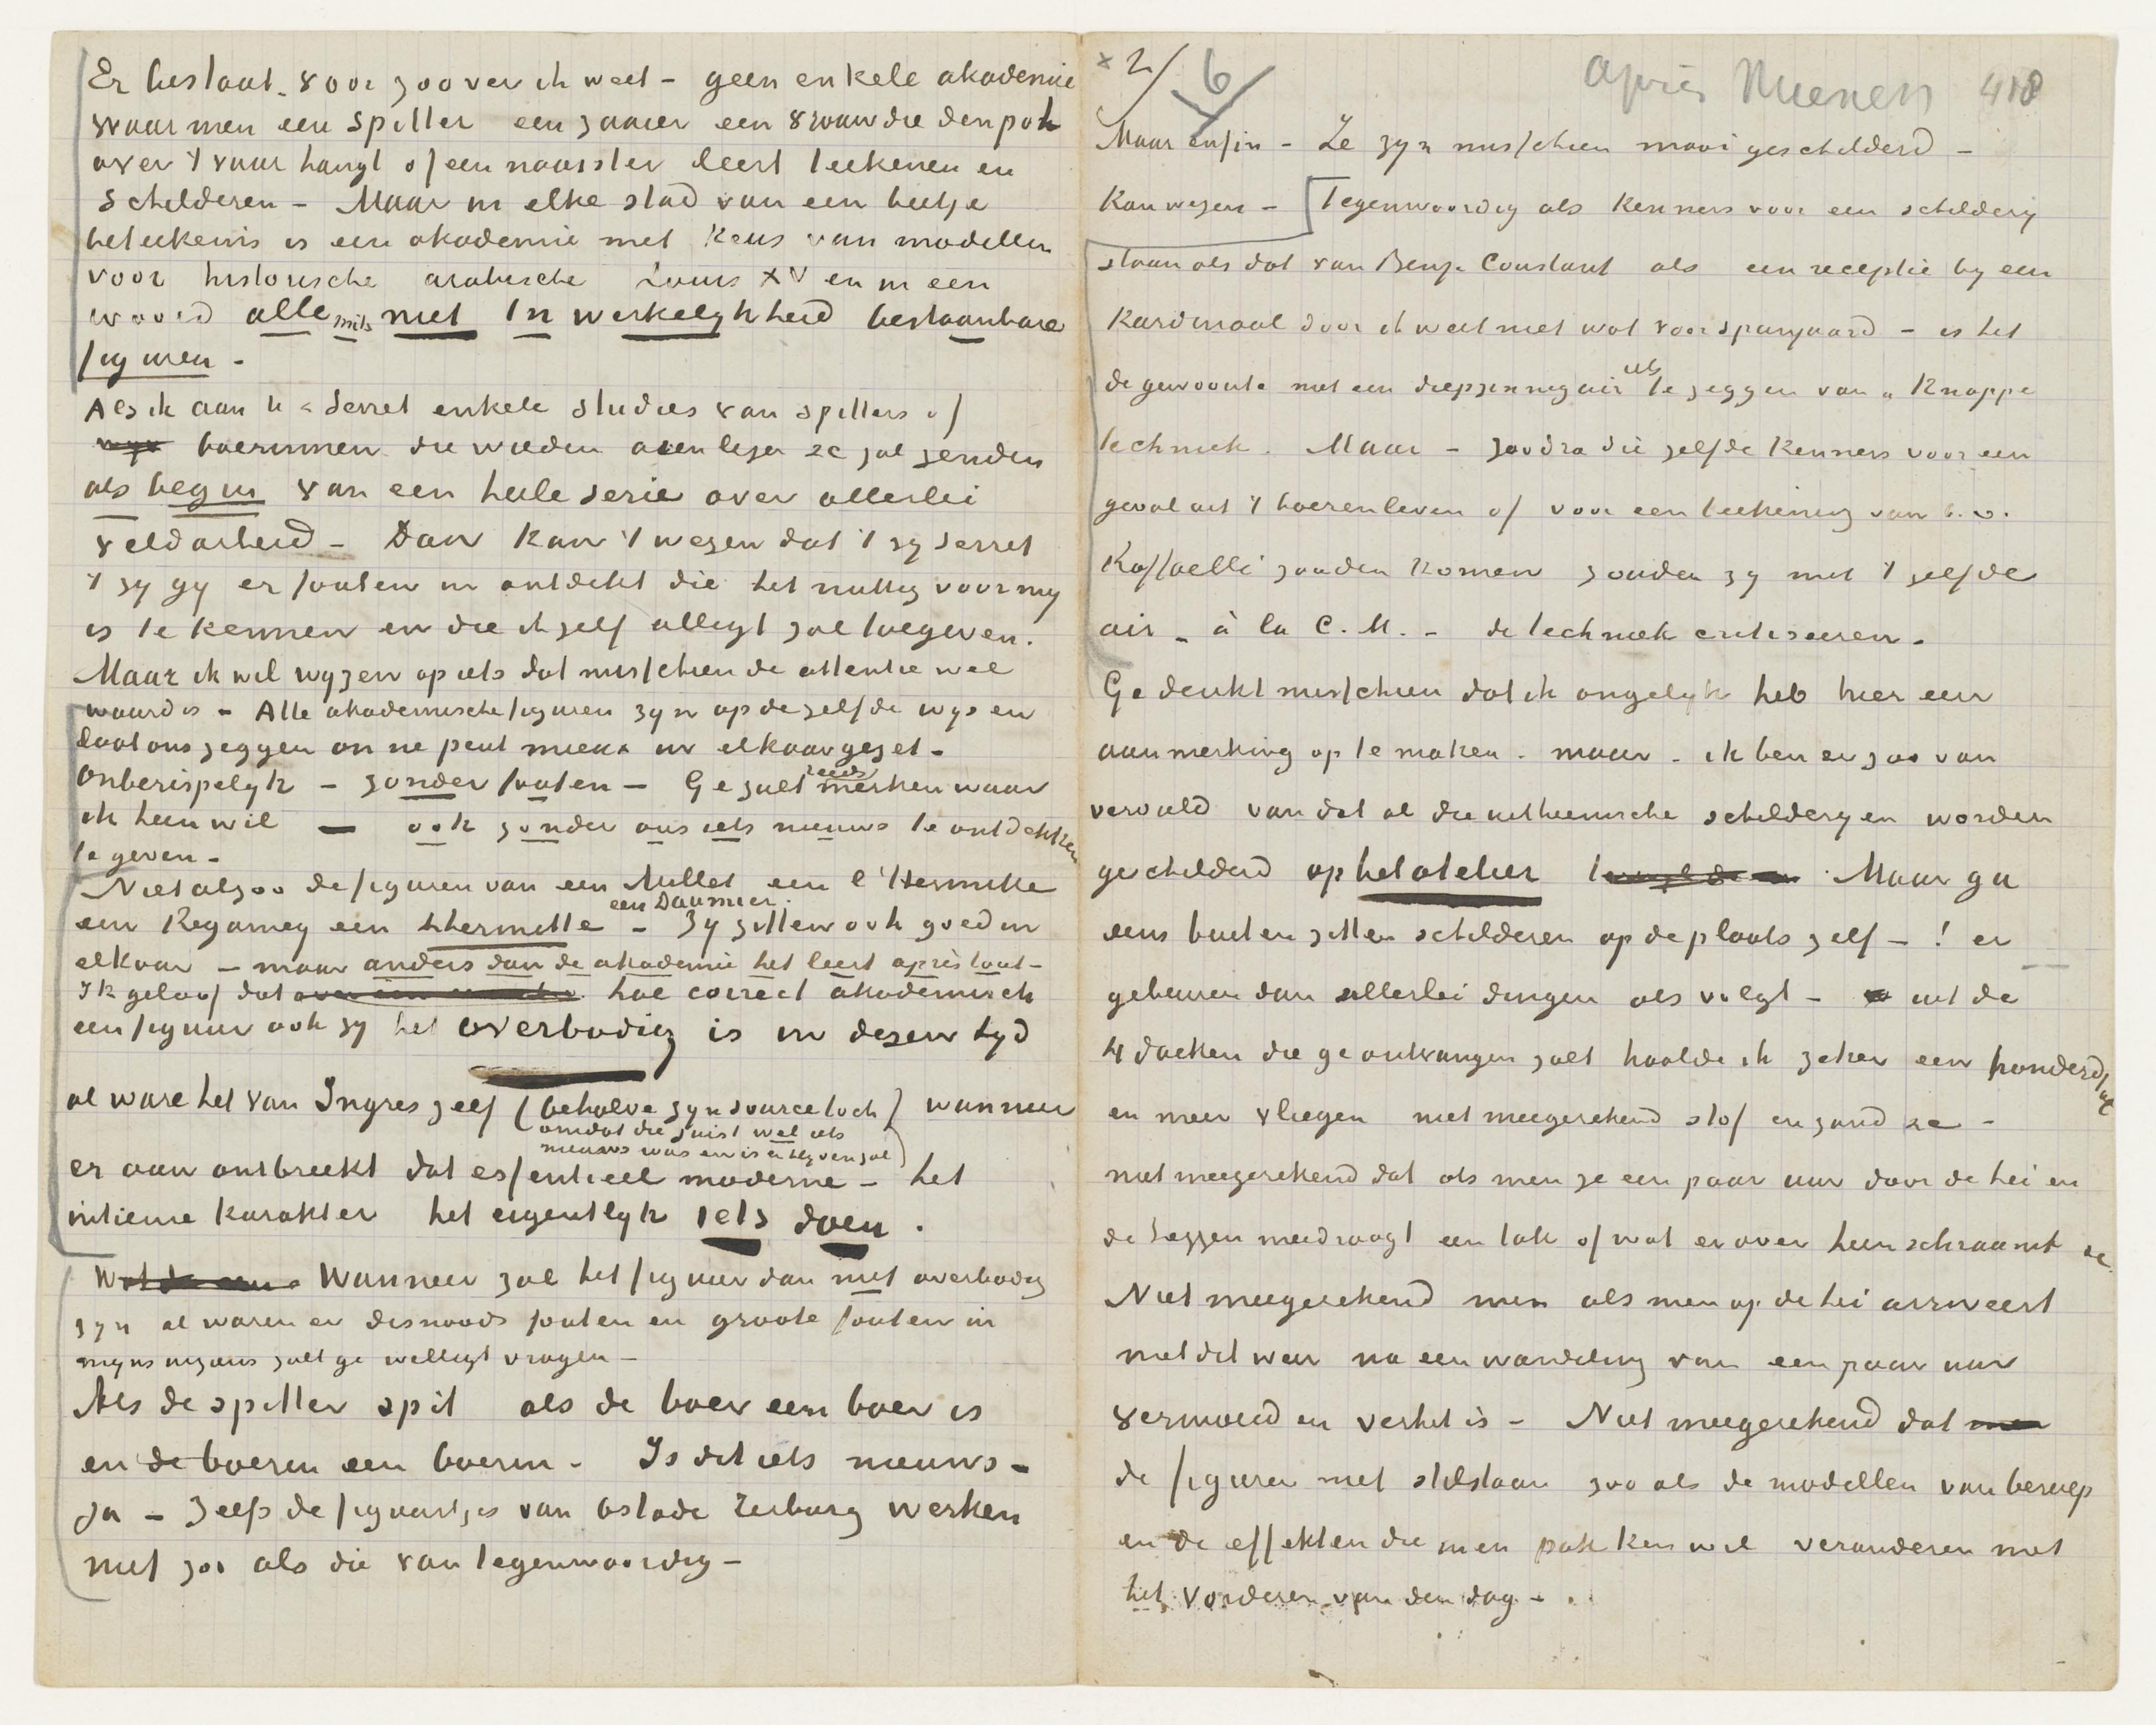 Er bestaat – voor zoover ik weet – geen enkele akademie
waar men een spitter een zaaier een vrouw die den pot
over 't vuur hangt of een naaister leert teekenen en
schilderen – Maar in elke stad van een beetje
beteekenis is een akademie met keus van modellen
voor historische arabische Louis XV en in een
woord alle mits niet in werkelijkheid bestaanbare
figuren –
Als ik aan U & Serret enkele studies van spitters of
boerinnen die wieden aren lezen &c zal zenden
als begin van een heele serie over allerlei
veldarbeid – Dan kan 't wezen dat 't zij Serret
't zij gij er fouten in ontdekt die het nuttig voor mij
is te kennen en die ik zelf alligt zal toegeven.
Maar ik wil wijzen op iets dat misschien de attentie wel
waard is – Alle akademische figuren zijn op dezelfde wijs en
laat ons zeggen on ne peut mieux in elkaar gezet –
Onberispelijk – zonder fouten – Ge zult reeds merken waar
ik heen wil – ook zonder ons iets nieuws te ontdekken
te geven –
Niet alzoo de figuren van een Millet een l'Hermitte
een Regamey een Lhermitte een Daumier. – Zij zitten ook goed in
elkaar – maar anders dan de akademie het leert après tout –
Ik geloof dat hoe correct akademisch
een figuur ook zij het overbodig is in dezen tijd
al ware het van Ingres zelf (behalve zijn source toch) wanneer
omdat die juist wel iets
nieuws was en is en blijven zal)
er aan ontbreekt dat essentieel moderne – het
intieme karakter het eigentlijk iets doen.
Wanneer zal het figuur dan niet overbodig
zijn al waren er desnoods fouten en groote fouten in
mijns inziens zult ge welligt vragen –
Als de spitter spit als de boer een boer is
en de boerin een boerin – Is dit iets nieuws –
Ja – Zelfs de figuurtjes van Ostade Terburg werken
niet zoo als die van tegenwoordig –
x 2/ 6 après Nuenen 418
Maar enfin – Ze zijn misschien mooi geschilderd –
Kan wezen – Tegenwoordig als kenners voor een schilderij
staan als dat van Benj. Constant als een receptie bij een
kardinaal door ik weet niet wat voor spanjaard – is het
de gewoonte met een diepzinnig air iets te zeggen van „Knappe
techniek. Maar – zoodra die zelfde kenners voor een
geval uit 't boerenleven of voor een teekening van b.v.
Raffaelli zouden komen zouden zij met 't zelfde
air – à la C.M. – de techniek critiseeren.
Ge denkt misschien dat ik ongelijk heb hier een
aanmerking op te maken – maar – ik ben er zoo van
vervuld van dat al die uitheemsche schilderijen worden
geschilderd op het atelier Maar ga
eens buiten zitten schilderen op de plaats zelf – ! er
gebeuren dan allerlei dingen als volgt – uit de
4 doeken die ge ontvangen zult haalde ik zeker een honderdtal
en meer vliegen niet meegerekend stof en zand &c –
niet meegerekend dat als men ze een paar uur door de hei en
de heggen meedraagt een tak of wat er over heen schraamt &c
Niet meegerekend men als men op de hei arriveert
met dit weer na een wandeling van een paar uur
vermoeid en verhit is – Niet meegerekend dat
de figuren niet stilstaan zoo als de modellen van beroep
en de effekten die men pakken wil veranderen met
het vorderen van den dag –